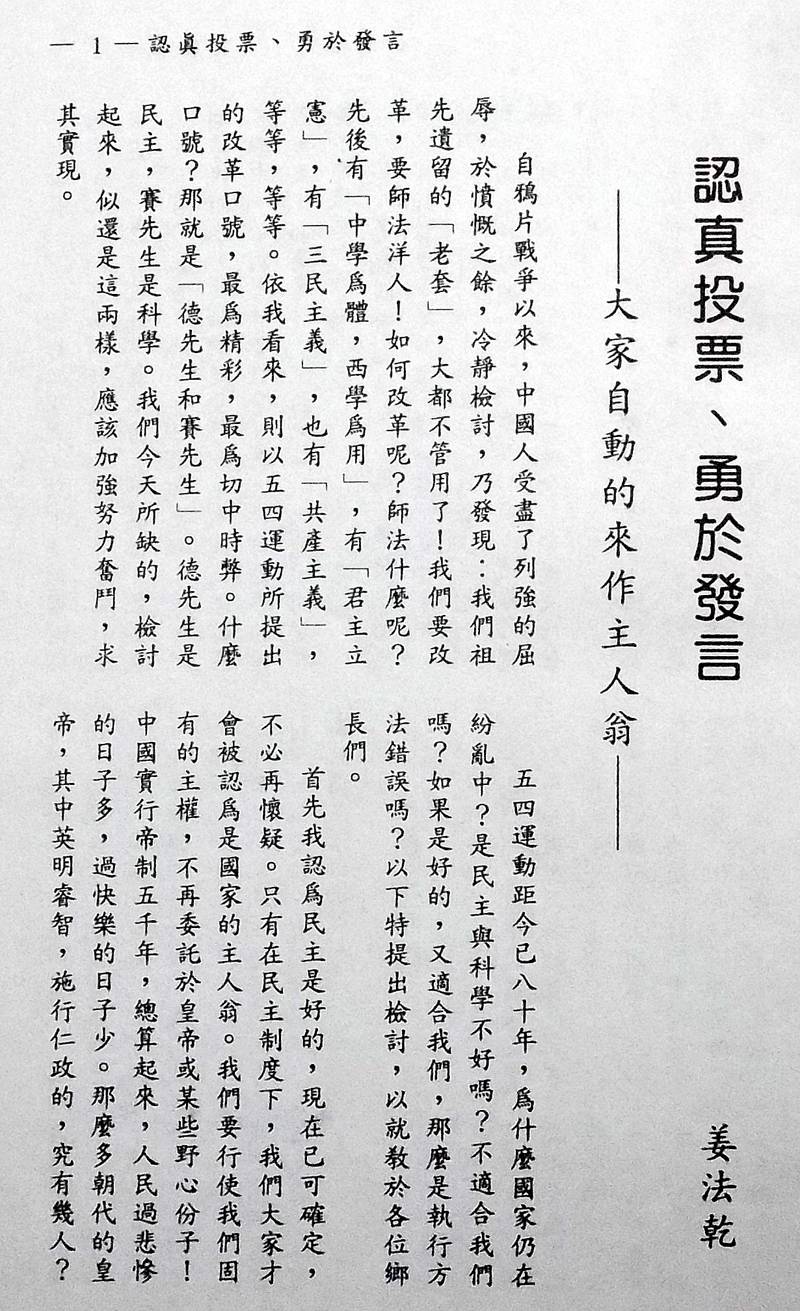 — 1 — 認眞投票、勇於發言
認真投票、勇於發言
——大家自動的來作主人翁——
姜法乾
自鴉片戰爭以來，中國人受盡了列強的屈
辱，於憤慨之餘，冷靜檢討，乃發現：我們祖
先遺留的「老套」，大都不管用了！我們要改
革，要師法洋人！如何改革呢？師法什麼呢？
先後有「中學爲體，西學爲用」，有「君主立
憲」，有「三民主義」，也有「共產主義」，
等等，等等。依我看來，則以五四運動所提出
的改革口號，最爲精彩，最爲切中時弊。什麼
口號？那就是「德先生和賽先生」。德先生是
民主，賽先生是科學。我們今天所缺的，檢討
起來，似還是這兩樣，應該加強努力奮鬥，求
其實現。
五四運動距今已八十年，爲什麼國家仍在
紛亂中？是民主與科學不好嗎？不適合我們
嗎？如果是好的，又適合我們，那麼是執行方
法錯誤嗎？以下特提出檢討，以就教於各位鄉
長們。
首先我認爲民主是好的，現在已可確定，
不必再懷疑。只有在民主制度下，我們大家才
會被認爲是國家的主人翁。我們要行使我們固
有的主權，不再委託於皇帝或某些野心份子！
中國實行帝制五千年，總算起來，人民過悲慘
的日子多，過快樂的日子少。那麼多朝代的皇
帝，其中英明睿智，施行仁政的，究有幾人？